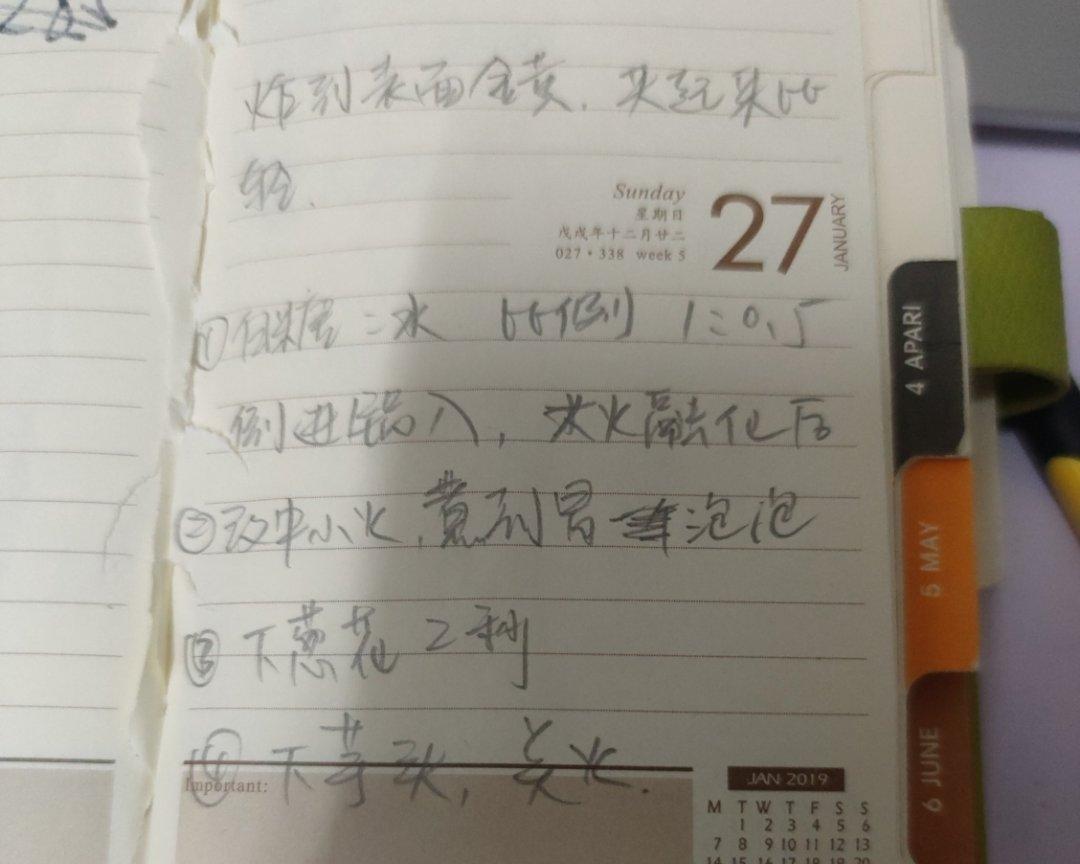 炸到表面金黄.夹起来比
轻.
Sunday
星期日
戊戌年十二月廿二
027·338 week 5
27
JANUARY
①白糖:水 比例 1:0.5
倒进锅入,大火融化后
②改中小火,煮到冒泡泡
③下葱花 2秒
④下芋头,关火.
Important:
JAN 2019
M T W T F S S
1 2 3 4 5 6
7 8 9 10 11 12 13
14 15 16 17 18 19 20
4 APARI
5 MAY
6 JUNE